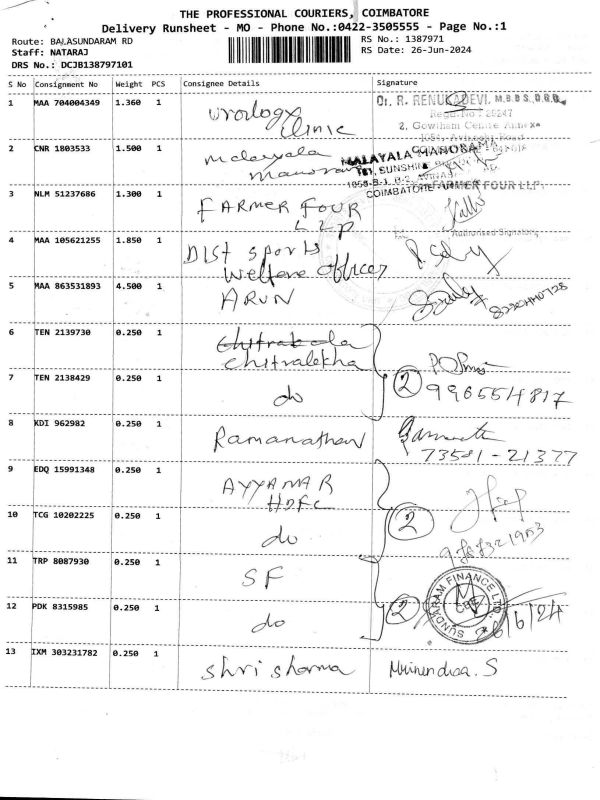 THE PROFESSIONAL COURIERS, COIMBATORE
Delivery Runsheet - MO - Phone No.:0422-3505555 - Page No.:1
Route: BALASUNDARAM RD
RS No.: 1387971
Staff: NATARAJ
RS Date: 26-Jun-2024
DRS No.: DCJB138797101
S No Consignment No Weight PCS Consignee Details Signature
1 MAA 704004349 1.360 1 Urology Clinic
Dr. R. RENUKADEVI, M.B.B.S., D.G.O.,
Regd.No : 26247
2, Gowtham Centre Annexe
1054, Avinashi Road
2 CNR 1803533 1.500 1 Malayala Manorama
MALAYALA MANORAMA
COIMBATORE
3 NLM 51237686 1.300 1 FARMER FOUR LLP
FARMER FOUR LLP.
Authorised Signatory
4 MAA 105621255 1.850 1 Dist Sports Welfare Officer
5 MAA 863531893 4.500 1 ARUN
6 TEN 2139730 0.250 1 Chitrakala Chitralekha
7 TEN 2138429 0.250 1 do
2
8 KDI 962982 0.250 1 Ramanathan
73581-21377
9 EDQ 15991348 0.250 1 AYYANAR HDFC
10 TCG 10202225 0.250 1 do
2
11 TRP 8087930 0.250 1 SF
SUNDARAM FINANCE LTD.
12 PDK 8315985 0.250 1 do
2
13 IXM 303231782 0.250 1 Shri sharma